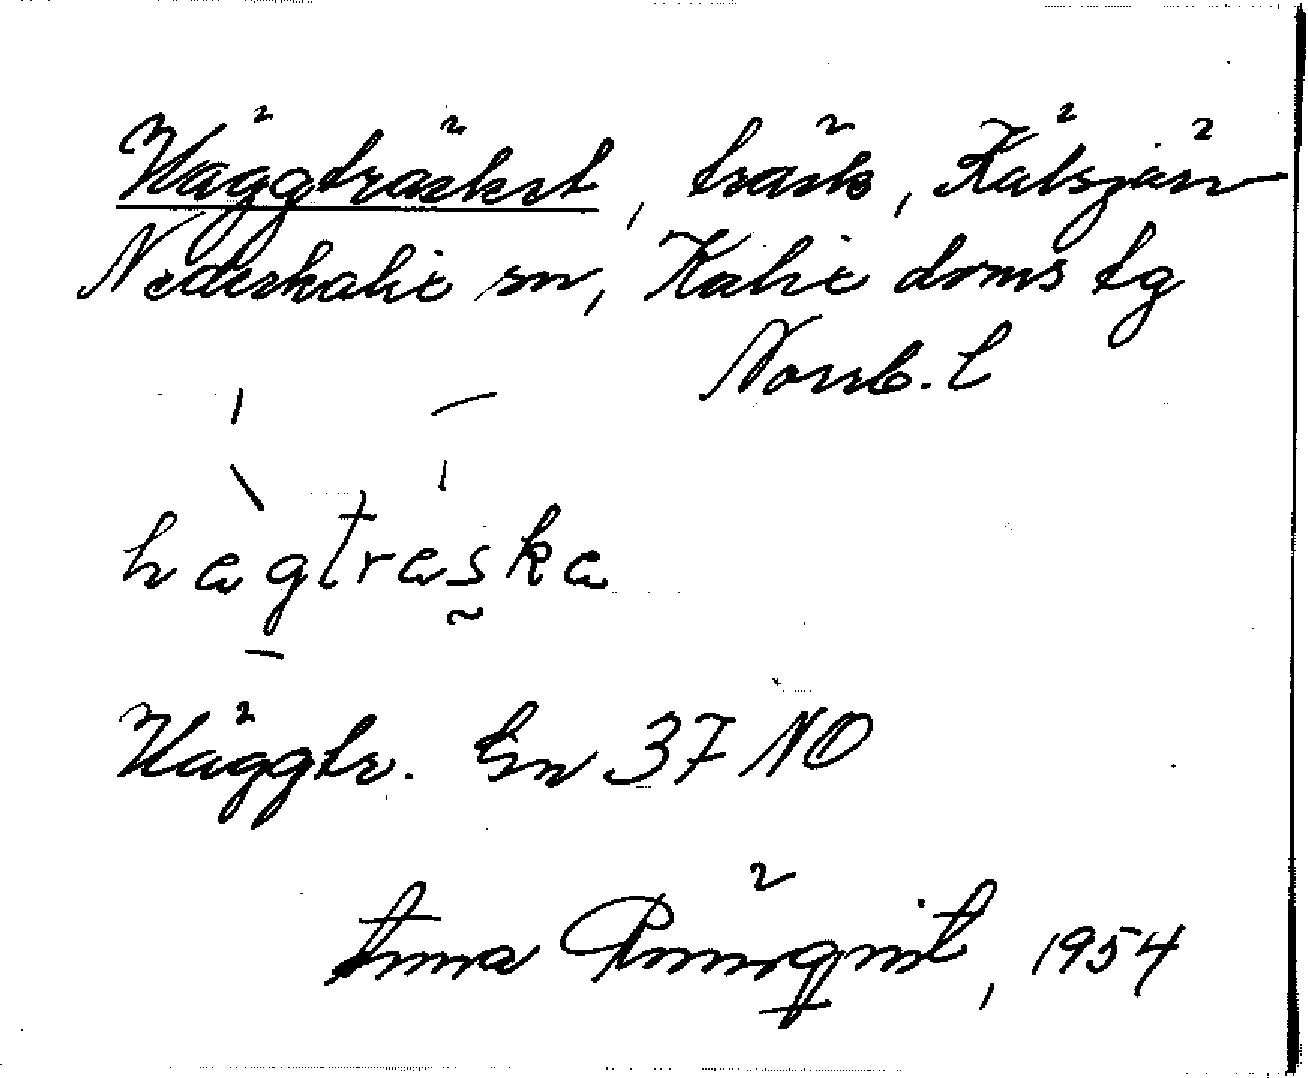 Häggträsket, träsk, Kälsjärv
Nederkalix sn, Kalix doms tg
Norrb. l
hagtraska
Häggtr. Gn 37 NO
Anna Rönnqvist, 1954